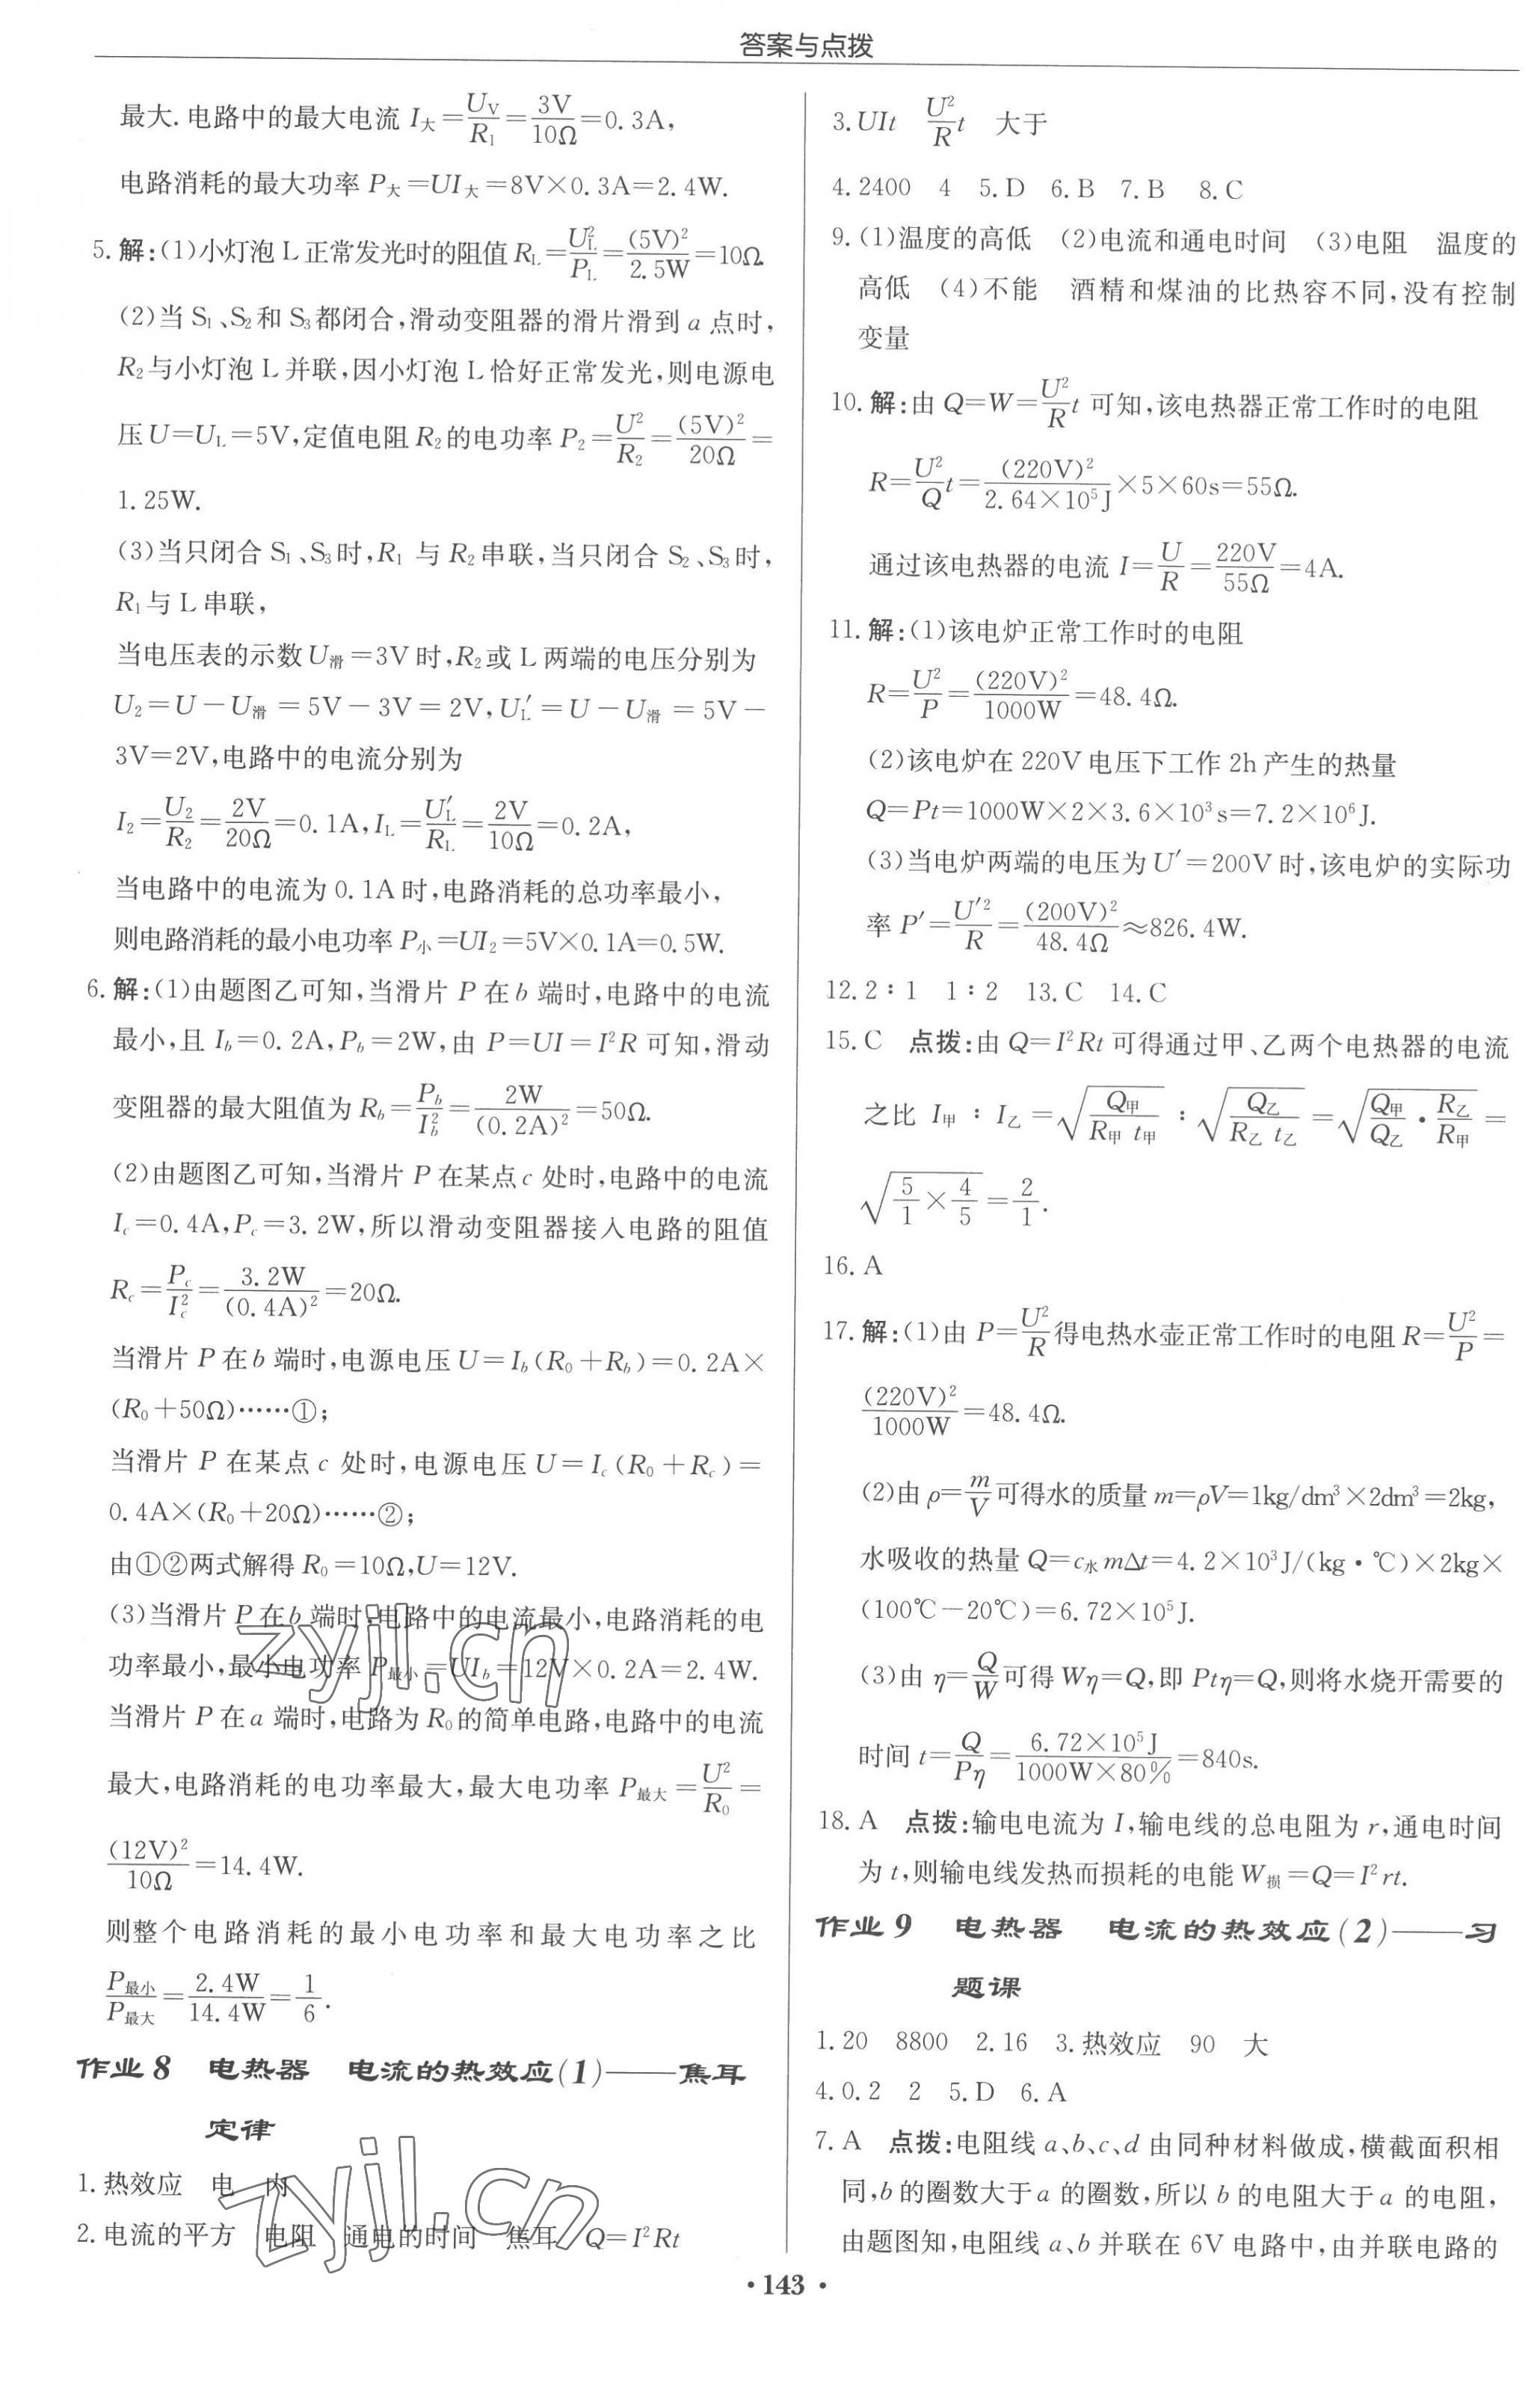 答案与点拨
最大.电路中的最大电流 I大=UV/R1=3V/10Ω=0.3A,
电路消耗的最大功率 P大=UI大=8V×0.3A=2.4W.
5.解:(1)小灯泡 L 正常发光时的阻值 RL=UL²/PL=(5V)²/2.5W=10Ω.
(2)当 S1、S2和 S3都闭合,滑动变阻器的滑片滑到 a 点时,
R2与小灯泡 L 并联,因小灯泡 L 恰好正常发光,则电源电
压 U=UL=5V,定值电阻 R2的电功率 P2=U²/R2=(5V)²/20Ω=
1.25W.
(3)当只闭合 S1、S3时,R1 与 R2串联,当只闭合 S2、S3时,
R1与 L 串联,
当电压表的示数 U滑=3V 时,R2或 L 两端的电压分别为
U2=U-U滑=5V-3V=2V,UL′=U-U滑=5V-
3V=2V,电路中的电流分别为
I2=U2/R2=2V/20Ω=0.1A,IL=UL′/RL=2V/10Ω=0.2A,
当电路中的电流为 0.1A 时,电路消耗的总功率最小,
则电路消耗的最小电功率 P小=UI2=5V×0.1A=0.5W.
6.解:(1)由题图乙可知,当滑片 P 在 b 端时,电路中的电流
最小,且 Ib=0.2A,Pb=2W,由 P=UI=I²R 可知,滑动
变阻器的最大阻值为 Rb=Pb/Ib²=2W/(0.2A)²=50Ω.
(2)由题图乙可知,当滑片 P 在某点 c 处时,电路中的电流
Ic=0.4A,Pc=3.2W,所以滑动变阻器接入电路的阻值
Rc=Pc/Ic²=3.2W/(0.4A)²=20Ω.
当滑片 P 在 b 端时,电源电压 U=Ib(R0+Rb)=0.2A×
(R0+50Ω)……①;
当滑片 P 在某点 c 处时,电源电压 U=Ic(R0+Rc)=
0.4A×(R0+20Ω)……②;
由①②两式解得 R0=10Ω,U=12V.
(3)当滑片 P 在 b 端时,电路中的电流最小,电路消耗的电
功率最小,最小电功率 P最小=UIb=12V×0.2A=2.4W.
当滑片 P 在 a 端时,电路为 R0的简单电路,电路中的电流
最大,电路消耗的电功率最大,最大电功率 P最大=U²/R0=
(12V)²/10Ω=14.4W.
则整个电路消耗的最小电功率和最大电功率之比
P最小/P最大=2.4W/14.4W=1/6.
作业 8 电热器 电流的热效应(1)——焦耳
定律
1.热效应 电 内
2.电流的平方 电阻 通电的时间 焦耳 Q=I²Rt
3.UIt U²/R t 大于
4.2400 4 5.D 6.B 7.B 8.C
9.(1)温度的高低 (2)电流和通电时间 (3)电阻 温度的
高低 (4)不能 酒精和煤油的比热容不同,没有控制
变量
10.解:由 Q=W=U²/R t 可知,该电热器正常工作时的电阻
R=U²/Q t=(220V)²/2.64×10⁵J×5×60s=55Ω.
通过该电热器的电流 I=U/R=220V/55Ω=4A.
11.解:(1)该电炉正常工作时的电阻
R=U²/P=(220V)²/1000W=48.4Ω.
(2)该电炉在 220V 电压下工作 2h 产生的热量
Q=Pt=1000W×2×3.6×10³s=7.2×10⁶J.
(3)当电炉两端的电压为 U′=200V 时,该电炉的实际功
率 P′=U′²/R=(200V)²/48.4Ω≈826.4W.
12.2∶1 1∶2 13.C 14.C
15.C 点拨:由 Q=I²Rt 可得通过甲、乙两个电热器的电流
之比 I甲∶I乙=√(Q甲/R甲 t甲)∶√(Q乙/R乙 t乙)=√(Q甲/Q乙·R乙/R甲)=
√(5/1×4/5)=2/1.
16.A
17.解:(1)由 P=U²/R得电热水壶正常工作时的电阻 R=U²/P=
(220V)²/1000W=48.4Ω.
(2)由 ρ=m/V可得水的质量 m=ρV=1kg/dm³×2dm³=2kg,
水吸收的热量 Q=c水mΔt=4.2×10³J/(kg·℃)×2kg×
(100℃-20℃)=6.72×10⁵J.
(3)由 η=Q/W可得 Wη=Q,即 Ptη=Q,则将水烧开需要的
时间 t=Q/Pη=6.72×10⁵J/1000W×80%=840s.
18.A 点拨:输电电流为 I,输电线的总电阻为 r,通电时间
为 t,则输电线发热而损耗的电能 W损=Q=I²rt.
作业 9 电热器 电流的热效应(2)——习
题课
1.20 8800 2.16 3.热效应 90 大
4.0.2 2 5.D 6.A
7.A 点拨:电阻线 a、b、c、d 由同种材料做成,横截面积相
同,b 的圈数大于 a 的圈数,所以 b 的电阻大于 a 的电阻,
由题图知,电阻线 a、b 并联在 6V 电路中,由并联电路的
·143·
zyjl.cn
zyjl.cn